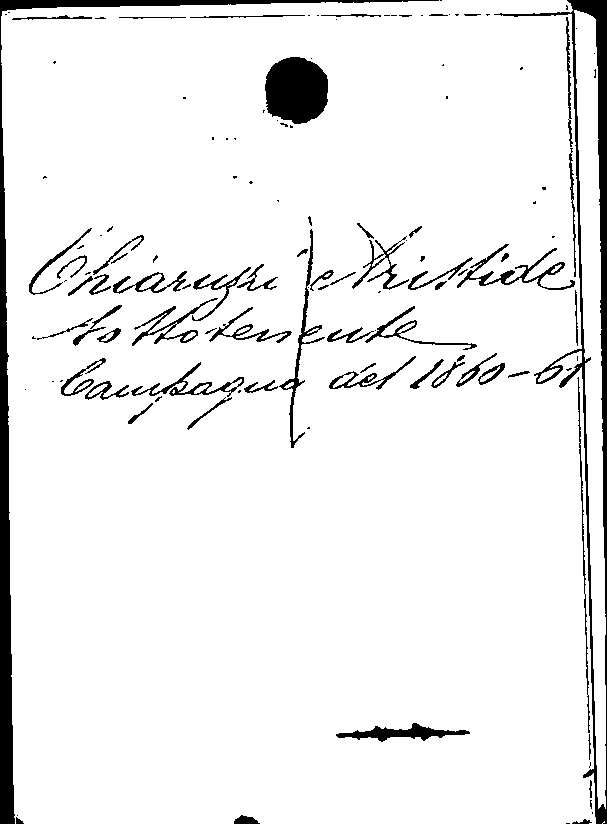 Chiaruzzi Aristide
Sottotenente
Campagna del 1860-61